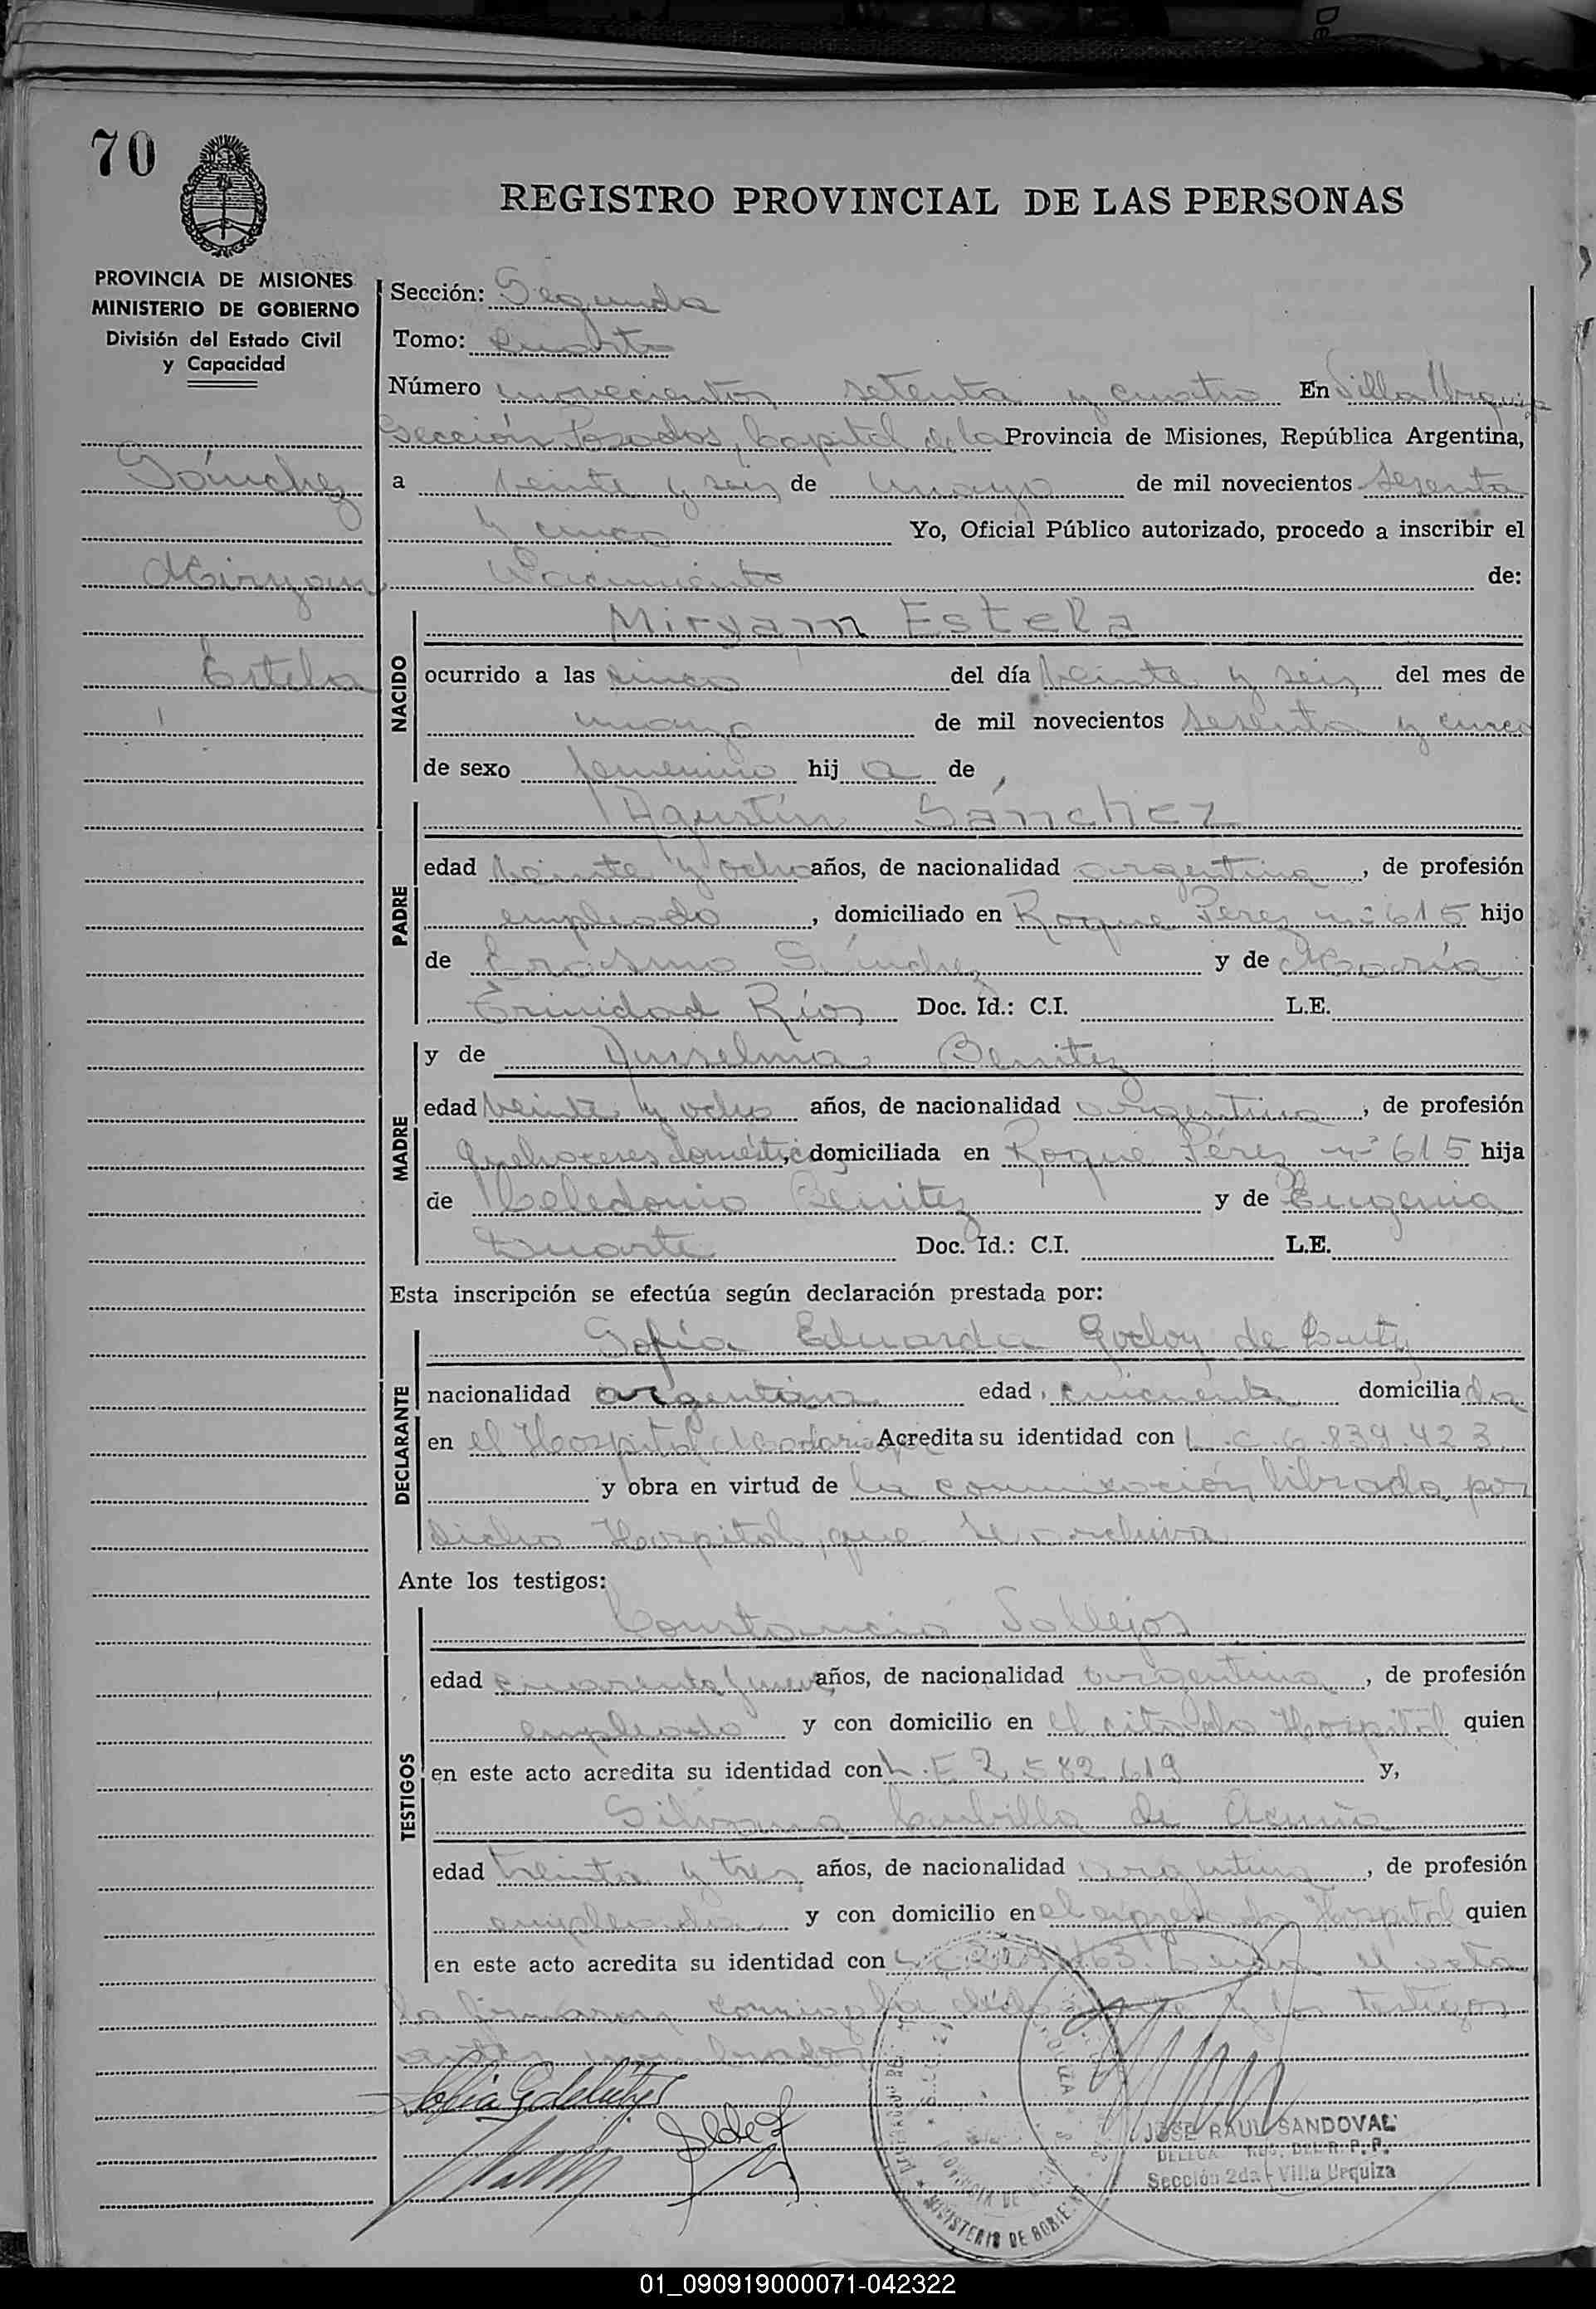 70
REGISTRO PROVINCIAL DE LAS PERSONAS
PROVINCIA DE MISIONES
MINISTERIO DE GOBIERNO
División del Estado Civil
y Capacidad
Sánchez
Miryam
Estela
Sección: Segunda
Tomo: Cuarto
Número novecientos setenta y cuatro En Villa Urquiza
Sección Posadas, Capital de la Provincia de Misiones, República Argentina,
a veinte y seis de mayo de mil novecientos sesenta
y cinco Yo, Oficial Público autorizado, procedo a inscribir el
Nacimiento de:
NACIDO
Miryam Estela
ocurrido a las cinco del día veinte y seis del mes de
mayo de mil novecientos sesenta y cinco
de sexo femenino hij a de
PADRE
Agustín Sánchez
edad veinte y ocho años, de nacionalidad argentina, de profesión
empleado, domiciliado en Roque Pérez nº 615 hijo
de Erasmo Sánchez y de María
Trinidad Ríos Doc. Id.: C.I. L.E.
MADRE
y de Anselma Benitez
edad veinte y ocho años, de nacionalidad argentina, de profesión
quehaceres domésticos, domiciliada en Roque Pérez nº 615 hija
de Celedonio Benitez y de Eugenia
Duarte Doc. Id.: C.I. L.E.
Esta inscripción se efectúa según declaración prestada por:
DECLARANTE
Sofía Eduarda Godoy de
nacionalidad argentina edad cincuenta domiciliada
en el Hospital Madariaga Acredita su identidad con L.C. 6.839.423
y obra en virtud de la comunicación librada por
dicho Hospital, que se archiva
Ante los testigos:
TESTIGOS
Constancio Vallejos
edad cuarenta y nueve años, de nacionalidad argentina, de profesión
empleado y con domicilio en el citado Hospital quien
en este acto acredita su identidad con L.E 2.582.619 y,
Silvana Cubilla de Acuña
edad treinta y tres años, de nacionalidad argentina, de profesión
empleada y con domicilio en el expresado Hospital quien
en este acto acredita su identidad con L.C. Leída el acta
la firmaron conmigo la declarante y los testigos
antes nombrados
JOSE RAUL SANDOVAL
DEL R. P. P.
Sección 2da - Villa Urquiza
MINISTERIO DE GOBIERNO
PROVINCIA DE
01_090919000071-042322